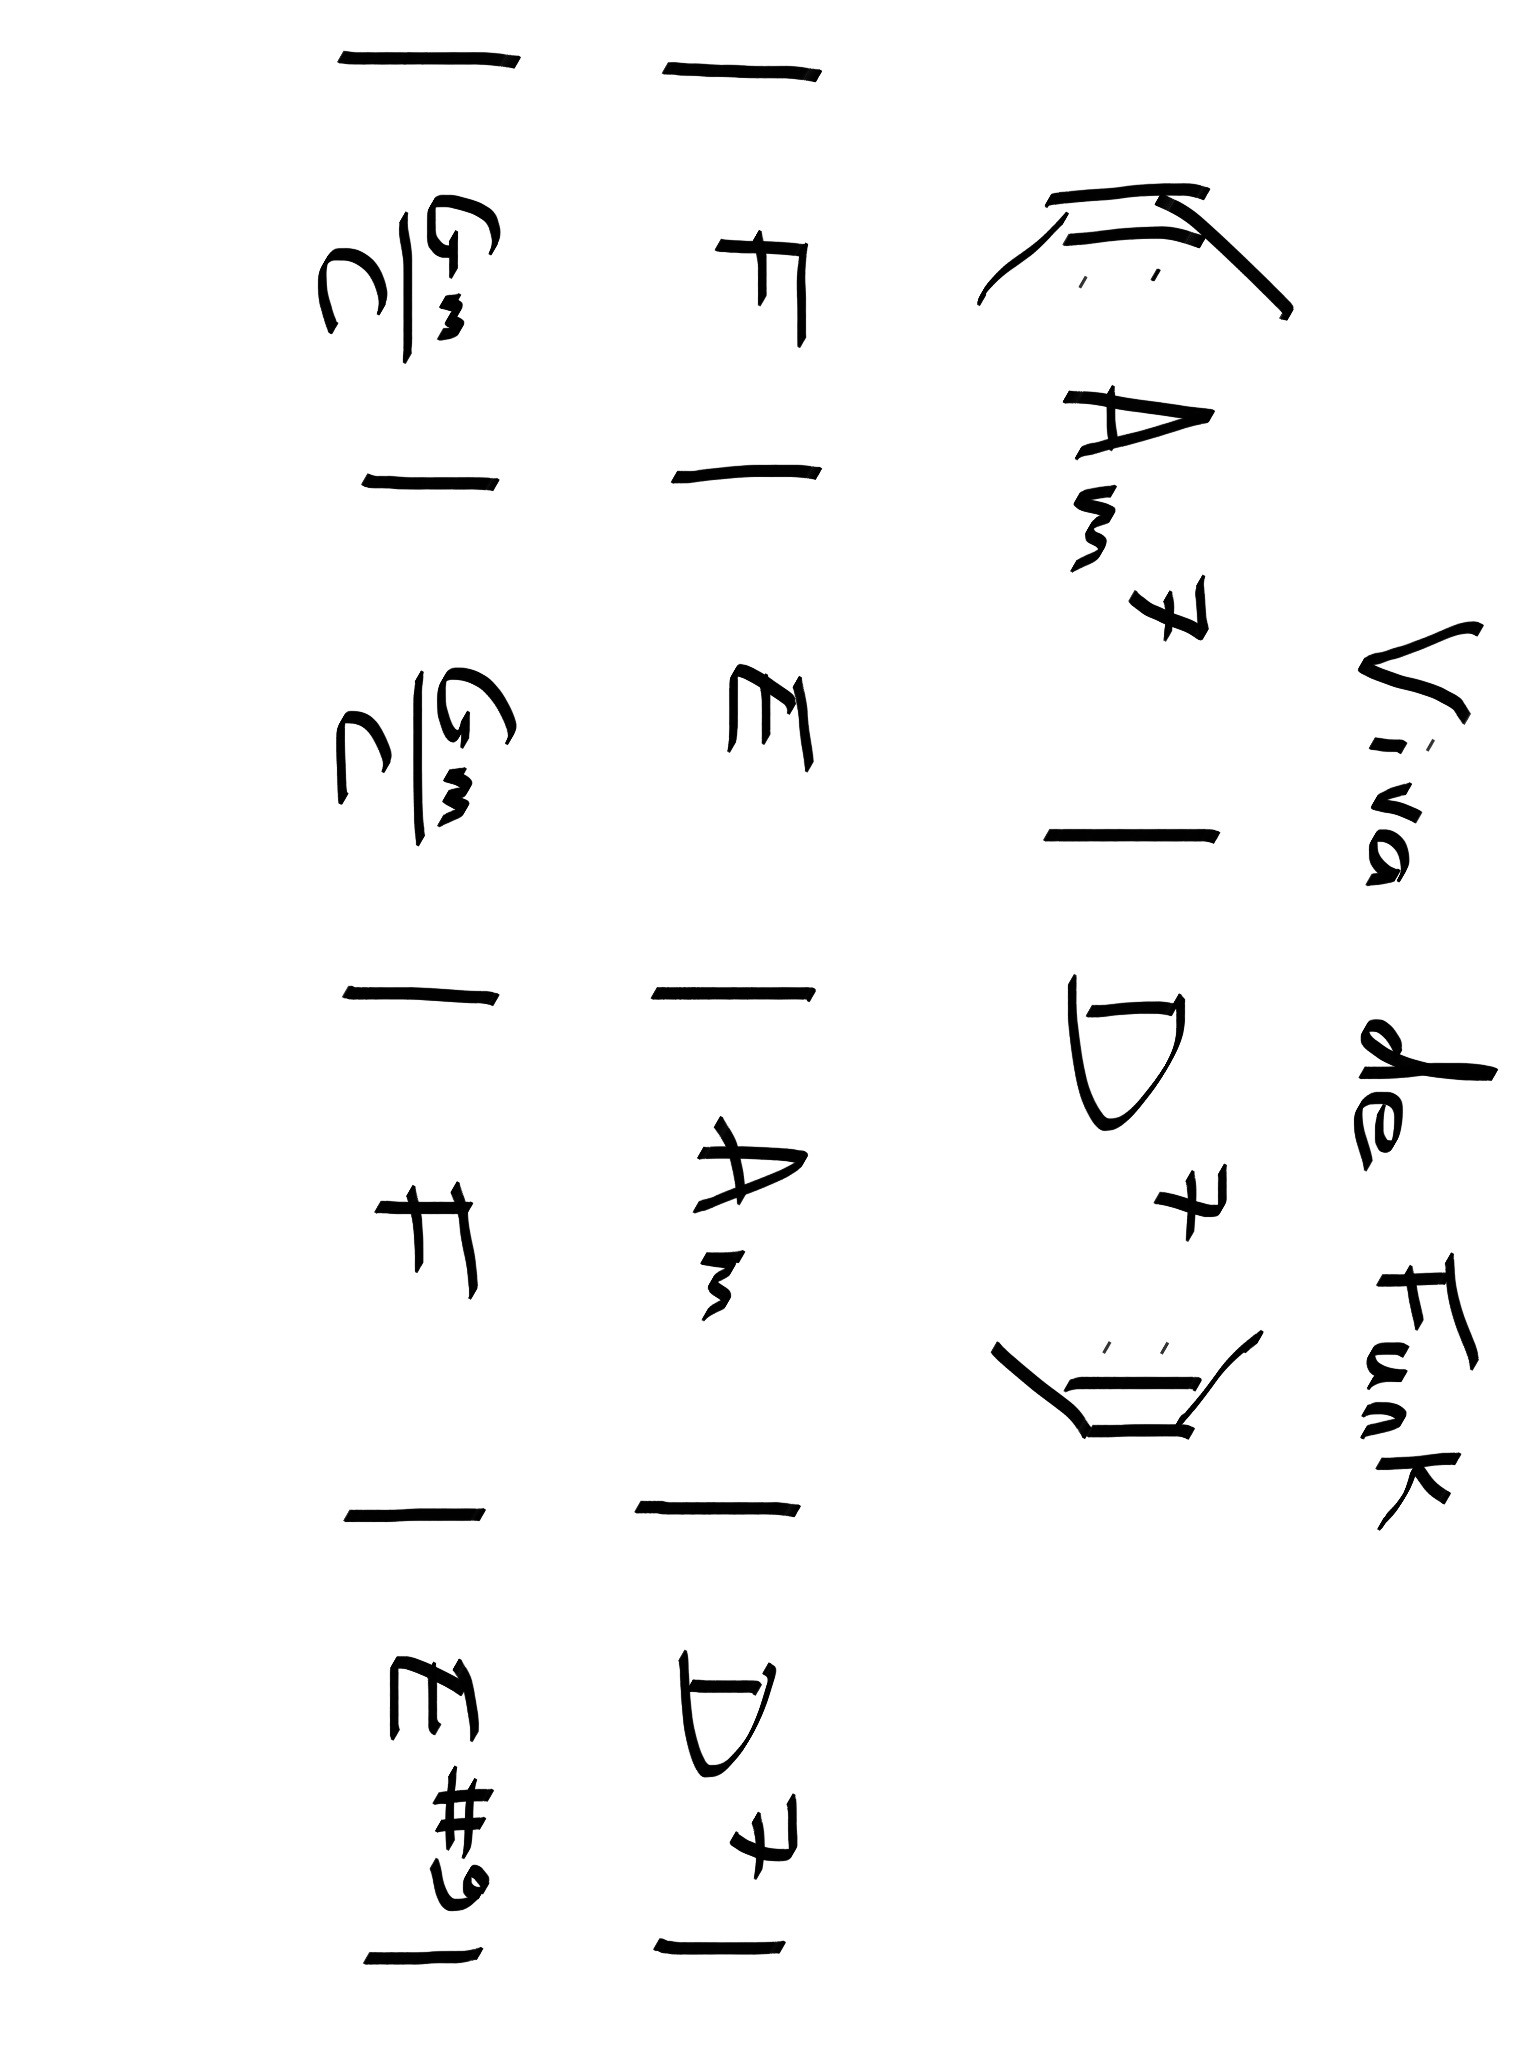 Viva de Funk
||: Am7 | D7 :||
| F | E | Am | D7 |
| Gm/C | Gm/C | F | E#9 |